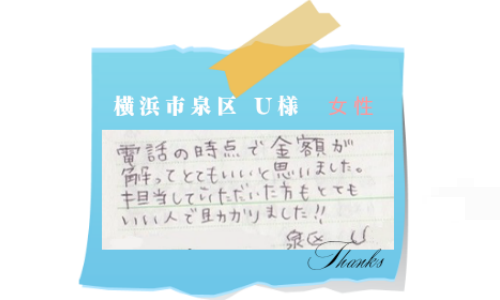 横浜市泉区 U様 女性
電話の時点で金額が
解ってとてもいいと思いました。
担当していただいた方もとても
いい人で助かりました!!
泉区 U
Thanks